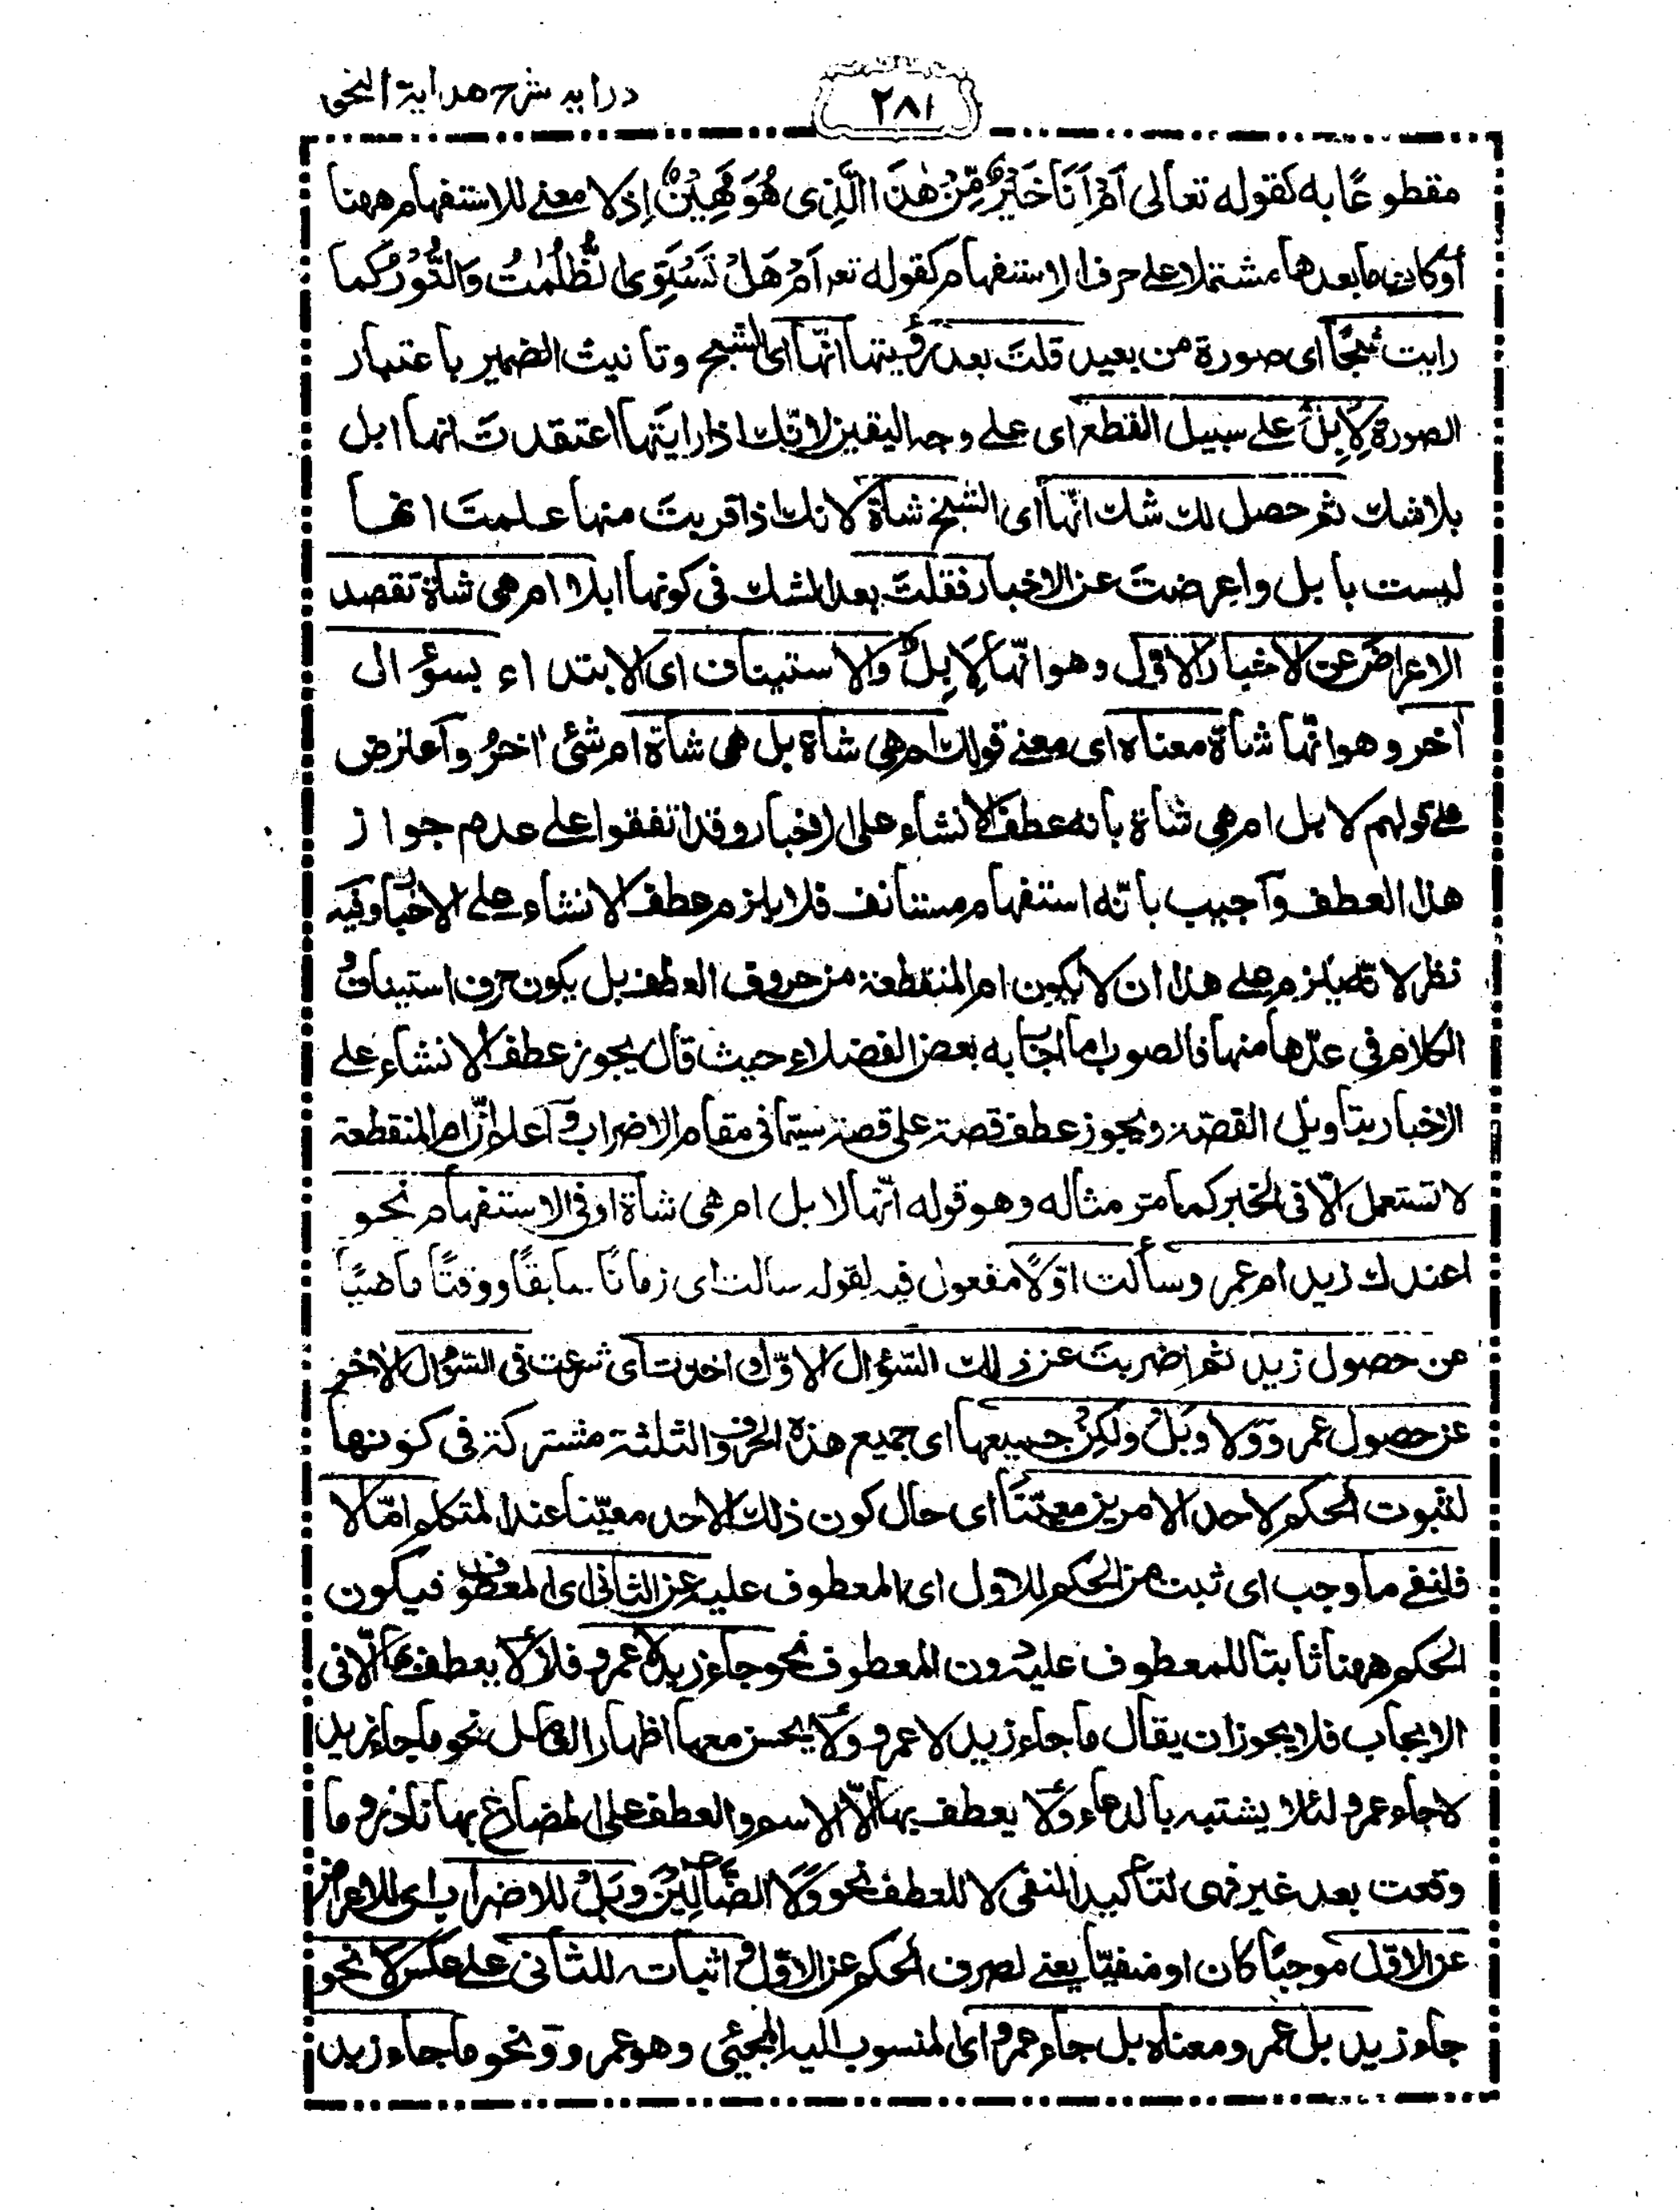 درايه شرح هداية النحو
٢٨١
مقطوعًا به كقوله تعالى اَمْ اَنَا خَيْرٌ مِّنْ هٰذَا الَّذِى هُوَ مَهِيْنٌ اِذ لا معنے للاستفهام ههنا
أو كان ما بعدها مشتملا على حرف الاستفهام كقوله تعـ اَمْ هَلْ تَسْتَوِى الظُّلُمٰتُ وَالنُّوْرُ كما
رايت شبحًا اى صورة من بعيد قلتَ بعد رؤيتها انّها اى الشبح وتانيث الضمير باعتبار
الصورة لَاِبِلٌ على سبيل القطع اى على وجه اليقين لانّك اذا رايتَها اعتقدتَ انها ابل
بلا شك ثم حصل لك شك انّها اى الشبح شاة لانك اذا قربتَ منها علمتَ انها
ليست بابل واعرضتَ عن الاخبار فقلتَ بعد الشك فى كونها ابلا ام هى شاة تقصد
الاعراضَ عن الاخبار الاوّل وهو انّها لَاِبِلٌ والاستيناف اى الابتداء بسؤال
اٰخر وهو انّها شاة معناه اى معنے قولك ام هى شاة بل هى شاة ام شئ اٰخرُ واَعترض
علے قولهم لابل ام هى شاة بانه عطف الانشاء على الاخبار وقد اتفقوا على عدم جواز
هذا العطف واَجيب بانّه استفهام مستانف فلا يلزم عطف الانشاء علے الاخبار وفيه
نظر لانّه يلزم علے هذا ان لا يكون ام المنقطعة من حروف العطف بل يكون حرف استيناف و
الكلام فى عدّها منها فالصواب ما اجاب به بعض الفضلاء حيث قال يجوز عطف الانشاء على
الاخبار بتاويل القصّة ويجوز عطف قصة على قصة سيّما فى مقام الاضراب واَعلم انّ ام المنقطعة
لا تستعمل الّا فى الخبر كما مرّ مثاله وهو قوله انّها لابل ام هى شاة او فى الاستفهام نحو
اعندك زيد ام عمرو سألت اوّلًا مفعول فيه لقوله سالت اى زمانًا سابقًا ووقتًا ماضيًا
عن حصول زيد ثم اضربتَ عن ذلك السّؤال الاوّل واخذت اى شرعت فى السّؤال الاٰخر
عن حصول عمرو وَلا وبَلْ ولٰكِنْ جميعها اى جميع هذه الحروف الثلثة مشتركة فى كونها
لثبوت الحكم لاحد الامرين معيّنًا اى حال كون ذلك الاحد معيّنا عند المتكلم امّا لا
فلنفے ما وجب اى ثبت من الحكم للاول اى المعطوف عليه عن الثانى اى المعطوف فيكون
الحكم ههنا ثابتا للمعطوف عليه دون المعطوف نحو جاء زيد لا عمرو فلا يعطف بها الّا فى
الايجاب فلا يجوز ان يقال ما جاء زيد لا عمرو ولا يحسن معها اظهار العامل نحو ما جاء زيد
لا جاء عمرو لئلا يشتبه بالدعاء ولا يعطف بها الّا الاسم والعطف على المضارع بها نادر وما
وقعت بعد غير فهى لتاكيد النفى لا للعطف نحو وَلَا الضَّآلِّيْنَ وبَلْ للاضراب اى للاعراض
عن الاوّل موجبًا كان او منفيّا يعنے لصرف الحكم عن الاوّل و اثباته للثانى على عكس لا نحو
جاء زيد بل عمرو ومعناه بل جاء عمرو اى المنسوب اليه المجئى وهو عمرو ونحو ما جاء زيد